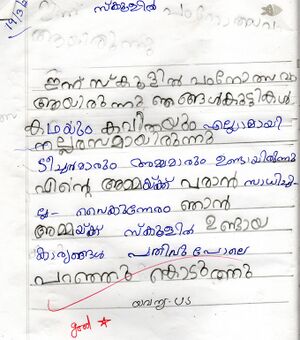 19/3
സ്കൂളിൽ പഠനോത്സവ
ആയിരുന്നു
ഇന്ന് സ്കൂളിൽ പഠനോത്സവ
ആയിരുന്നു ഞങ്ങൾകുട്ടികൾ
കഥയും കവിതയും എല്ലാമായി
നല്ലരസമായിരുന്നു
ടീച്ചർമാരും അമ്മമാരും ഉണ്ടായിരുന്നു
എൻ്റെ അമ്മയ്ക്ക് വരാൻ സാധിച്ചി
ല്ല- വൈകുന്നേരം ഞാൻ
അമ്മയ്ക്ക് സ്കൂളിൽ ഉണ്ടായ
കാര്യങ്ങൾ പതിവു പോലെ
പറഞ്ഞു കൊടുത്തു
U5
good